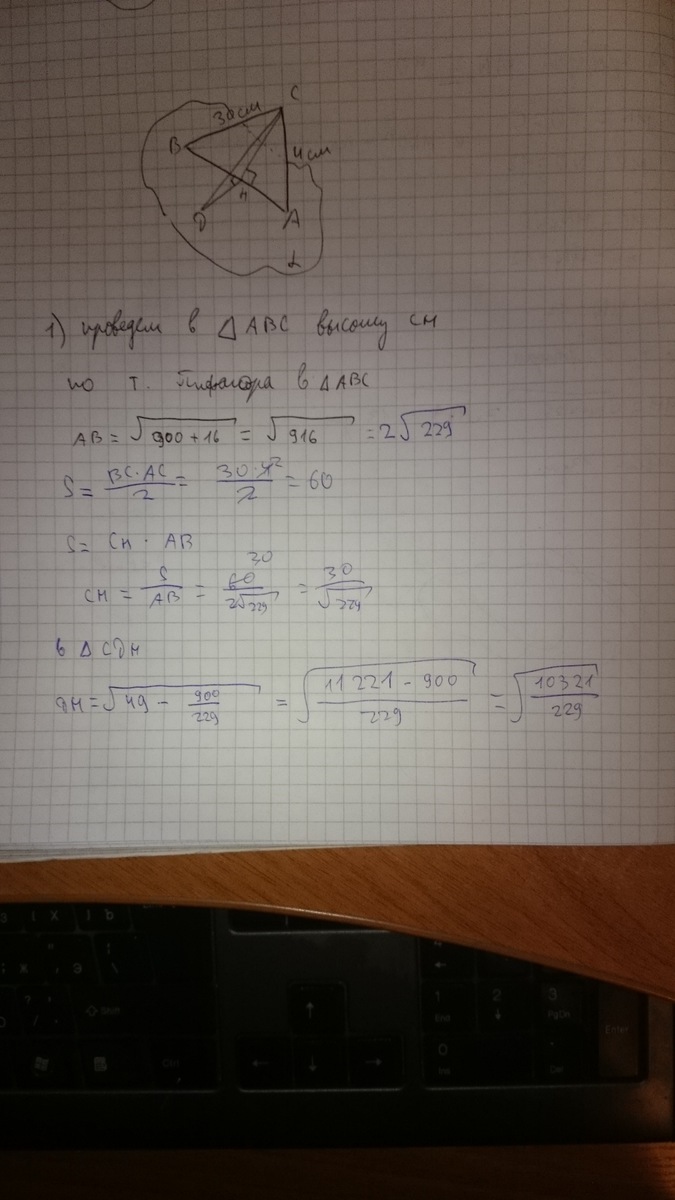 C
30см
B
4см
H
D
A
α
1) проведем в △ABC высоту CH
по т. Пифагора в △ABC
AB = √(900+16) = √916 = 2√229
S = BC·AC/2 = 30·4²/2 = 60
S = CH · AB
CH = S/AB = 60 30/2√229 = 30/√229
в △CDH
DH = √(49 − 900/229) = √((11221 − 900)/229) = √(10321/229)
Shift
Ctrl
1
End
2
3
PgDn
0
Ins
Del
Enter